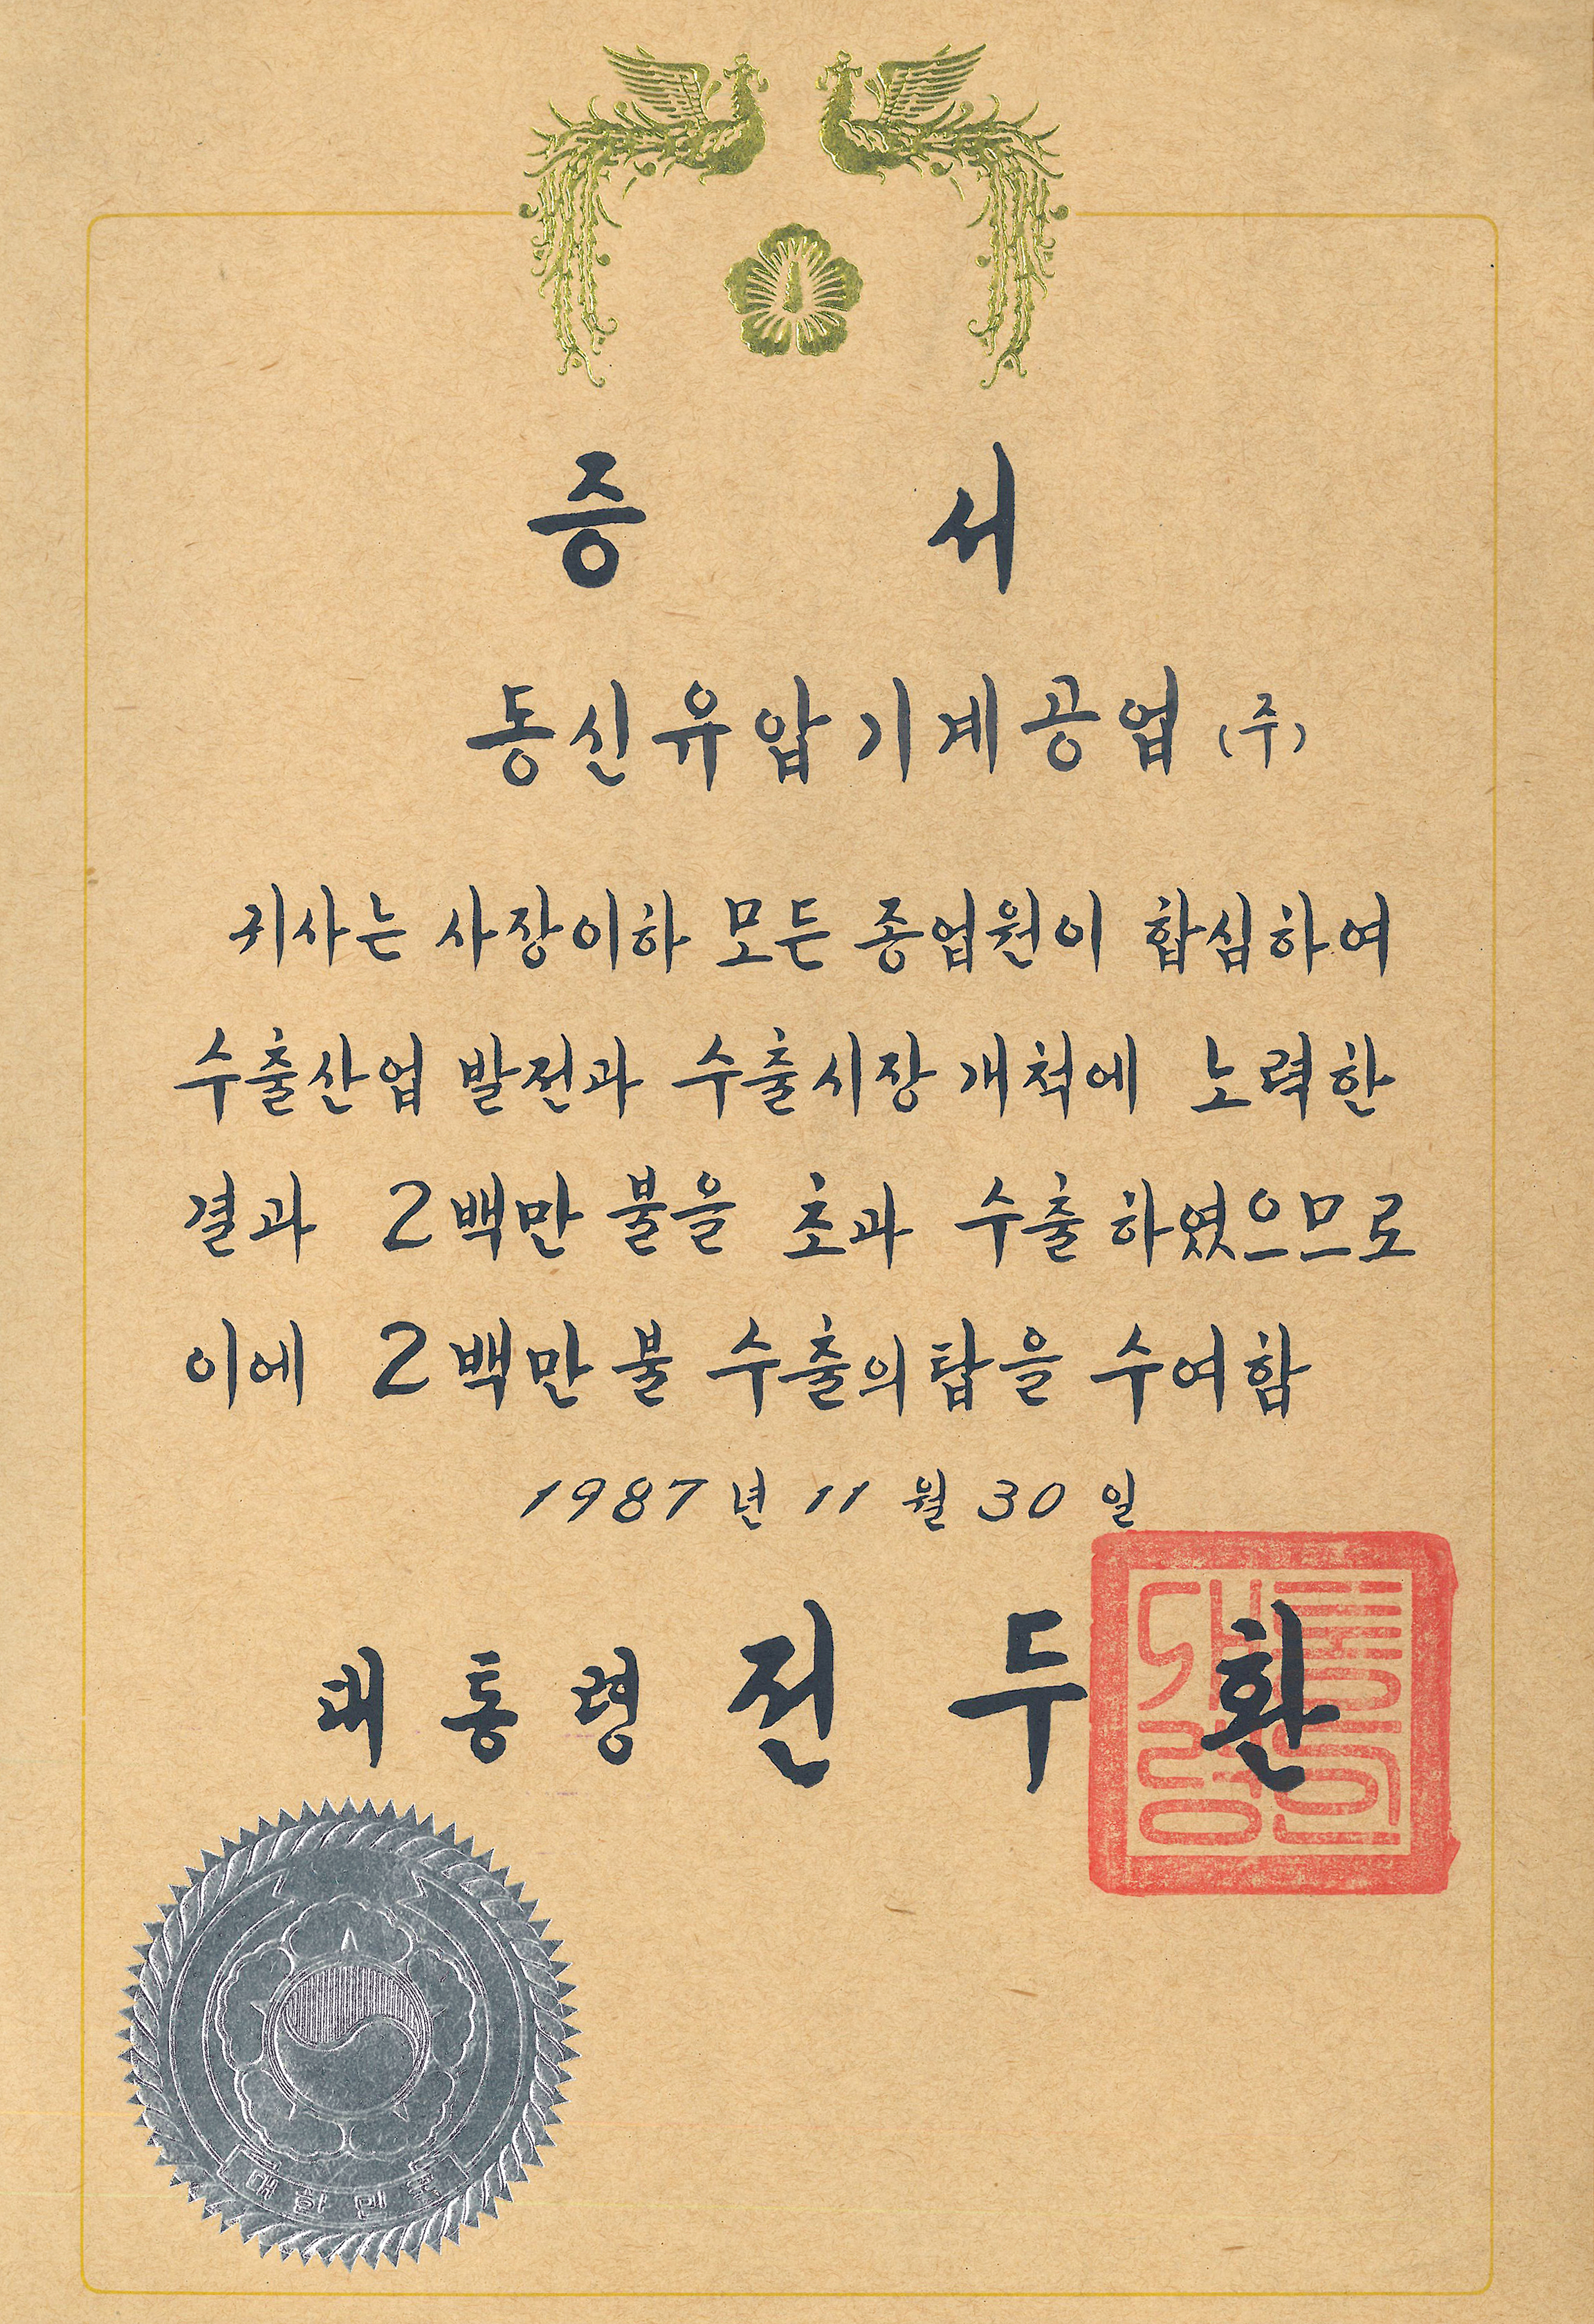 증 서
동신유압기계공업 (주)
귀사는 사장이하 모든 종업원이 합심하여
수출산업 발전과 수출시장 개척에 노력한
결과 2백만 불을 초과 수출 하였으므로
이에 2백만 불 수출의 탑을 수여함
1987년 11월 30일
대통령 전두환
대통령의인
대한민국